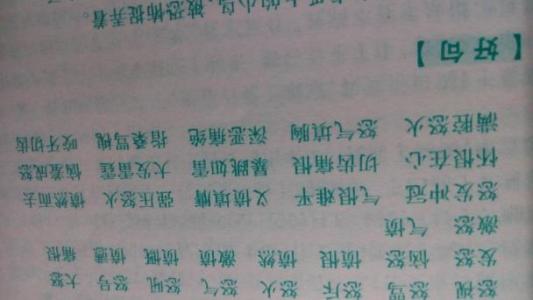 怒视 怒骂 怒斥 怒火 怒气 怒吼 怒号 大怒
发怒 恼怒 愤恨 愤然 激愤 愤慨 愤懑 痛恨
激怒 气愤
怒发冲冠 气恨难平 义愤填膺 强压怒火 愤然而去
怀恨在心 切齿痛恨 暴跳如雷 大发雷霆 恼羞成怒
满腔怒火 怒气填胸 深恶痛绝 指桑骂槐 咬牙切齿
【好句】
上的小鸟，被恐怖捉弄着